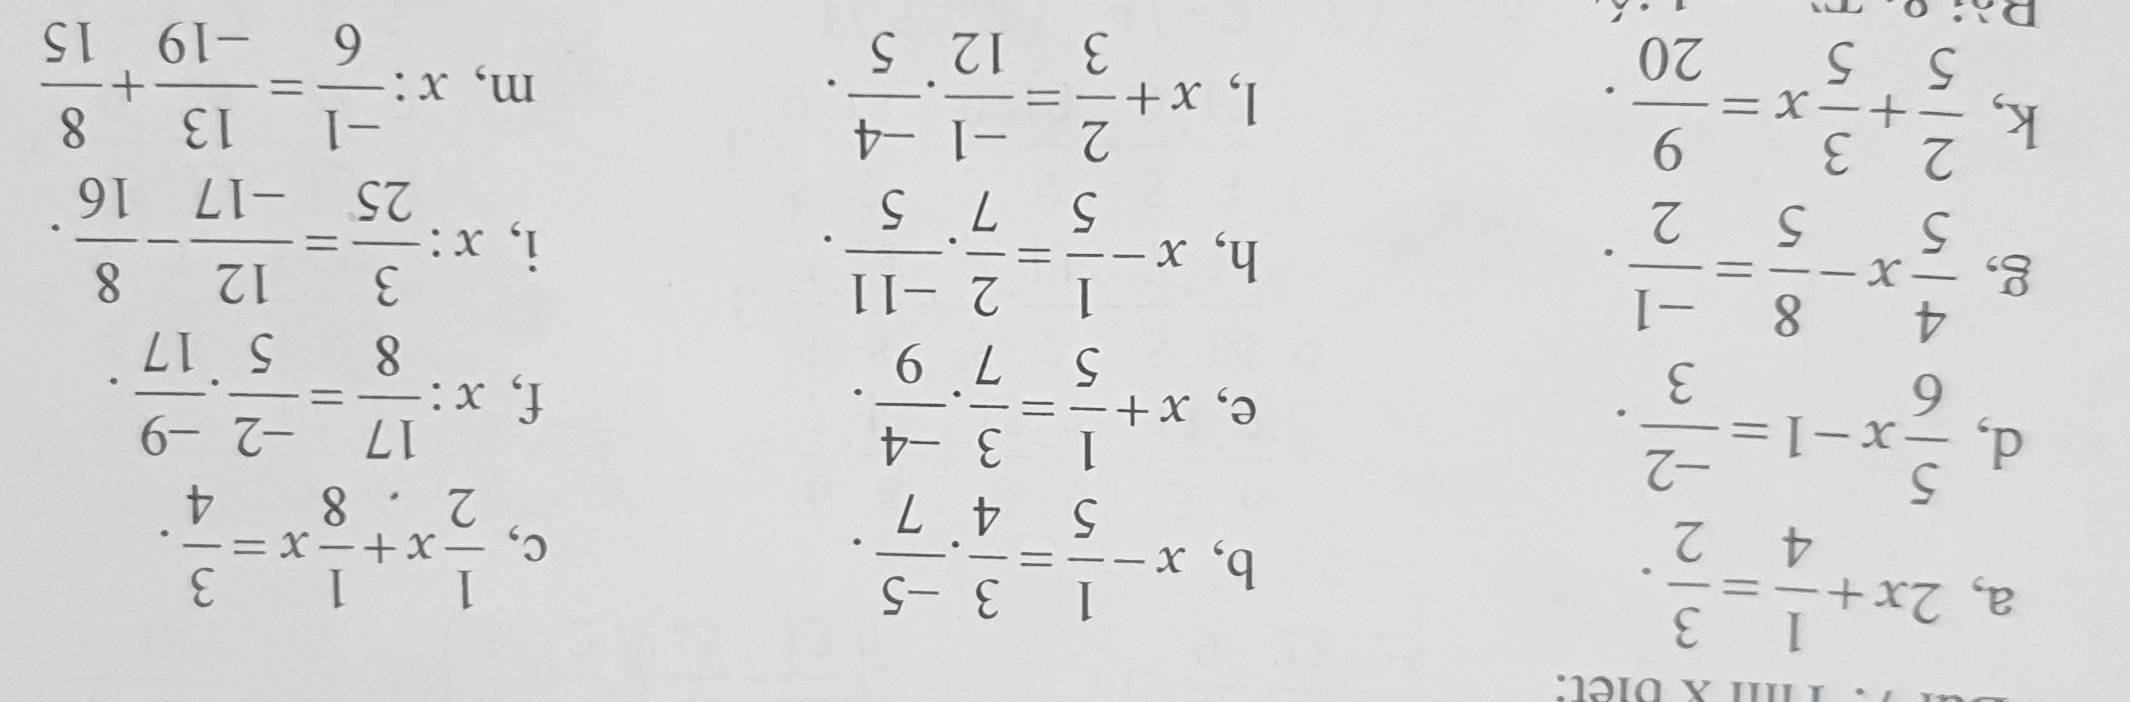 Tìm x biết:
a, 2x + 1/4 = 3/2. b, x - 1/5 = 3/4 . -5/7. c, 1/2 x + 1/8 x = 3/4.
d, 5/6 x - 1 = -2/3. e, x + 1/5 = 3/7 . -4/9. f, x : 17/8 = -2/5 . -9/17.
g, 4/5 x - 8/5 = -1/2. h, x - 1/5 = 2/7 . -11/5. i, x : 3/25 = 12/-17 - 8/16.
k, 2/5 + 3/5 x = 9/20. l, x + 2/3 = -1/12 . -4/5. m, x : -1/6 = 13/-19 + 8/15